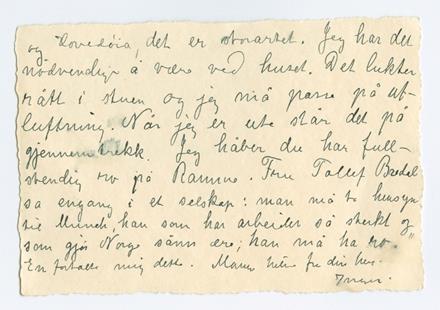 og Hovedøia, det er storartet. Jeg har det
nødvendig å være ved huset. Det lukter
rått i stuen og jeg må passe på ut-
luftning. Når jeg er ute står det på
gjennemtrekk. Jeg håber du har full-
stendig ro på Ramme. Fru Tollef Bredal
sa engang i et selskap: man må ta hensyn
til Munch, han som har arbeidet så sterkt og
som gjør Norge sånn ære, han må ha ro."
En fortalte mig dette. Mange hilsner fra din
Inger.